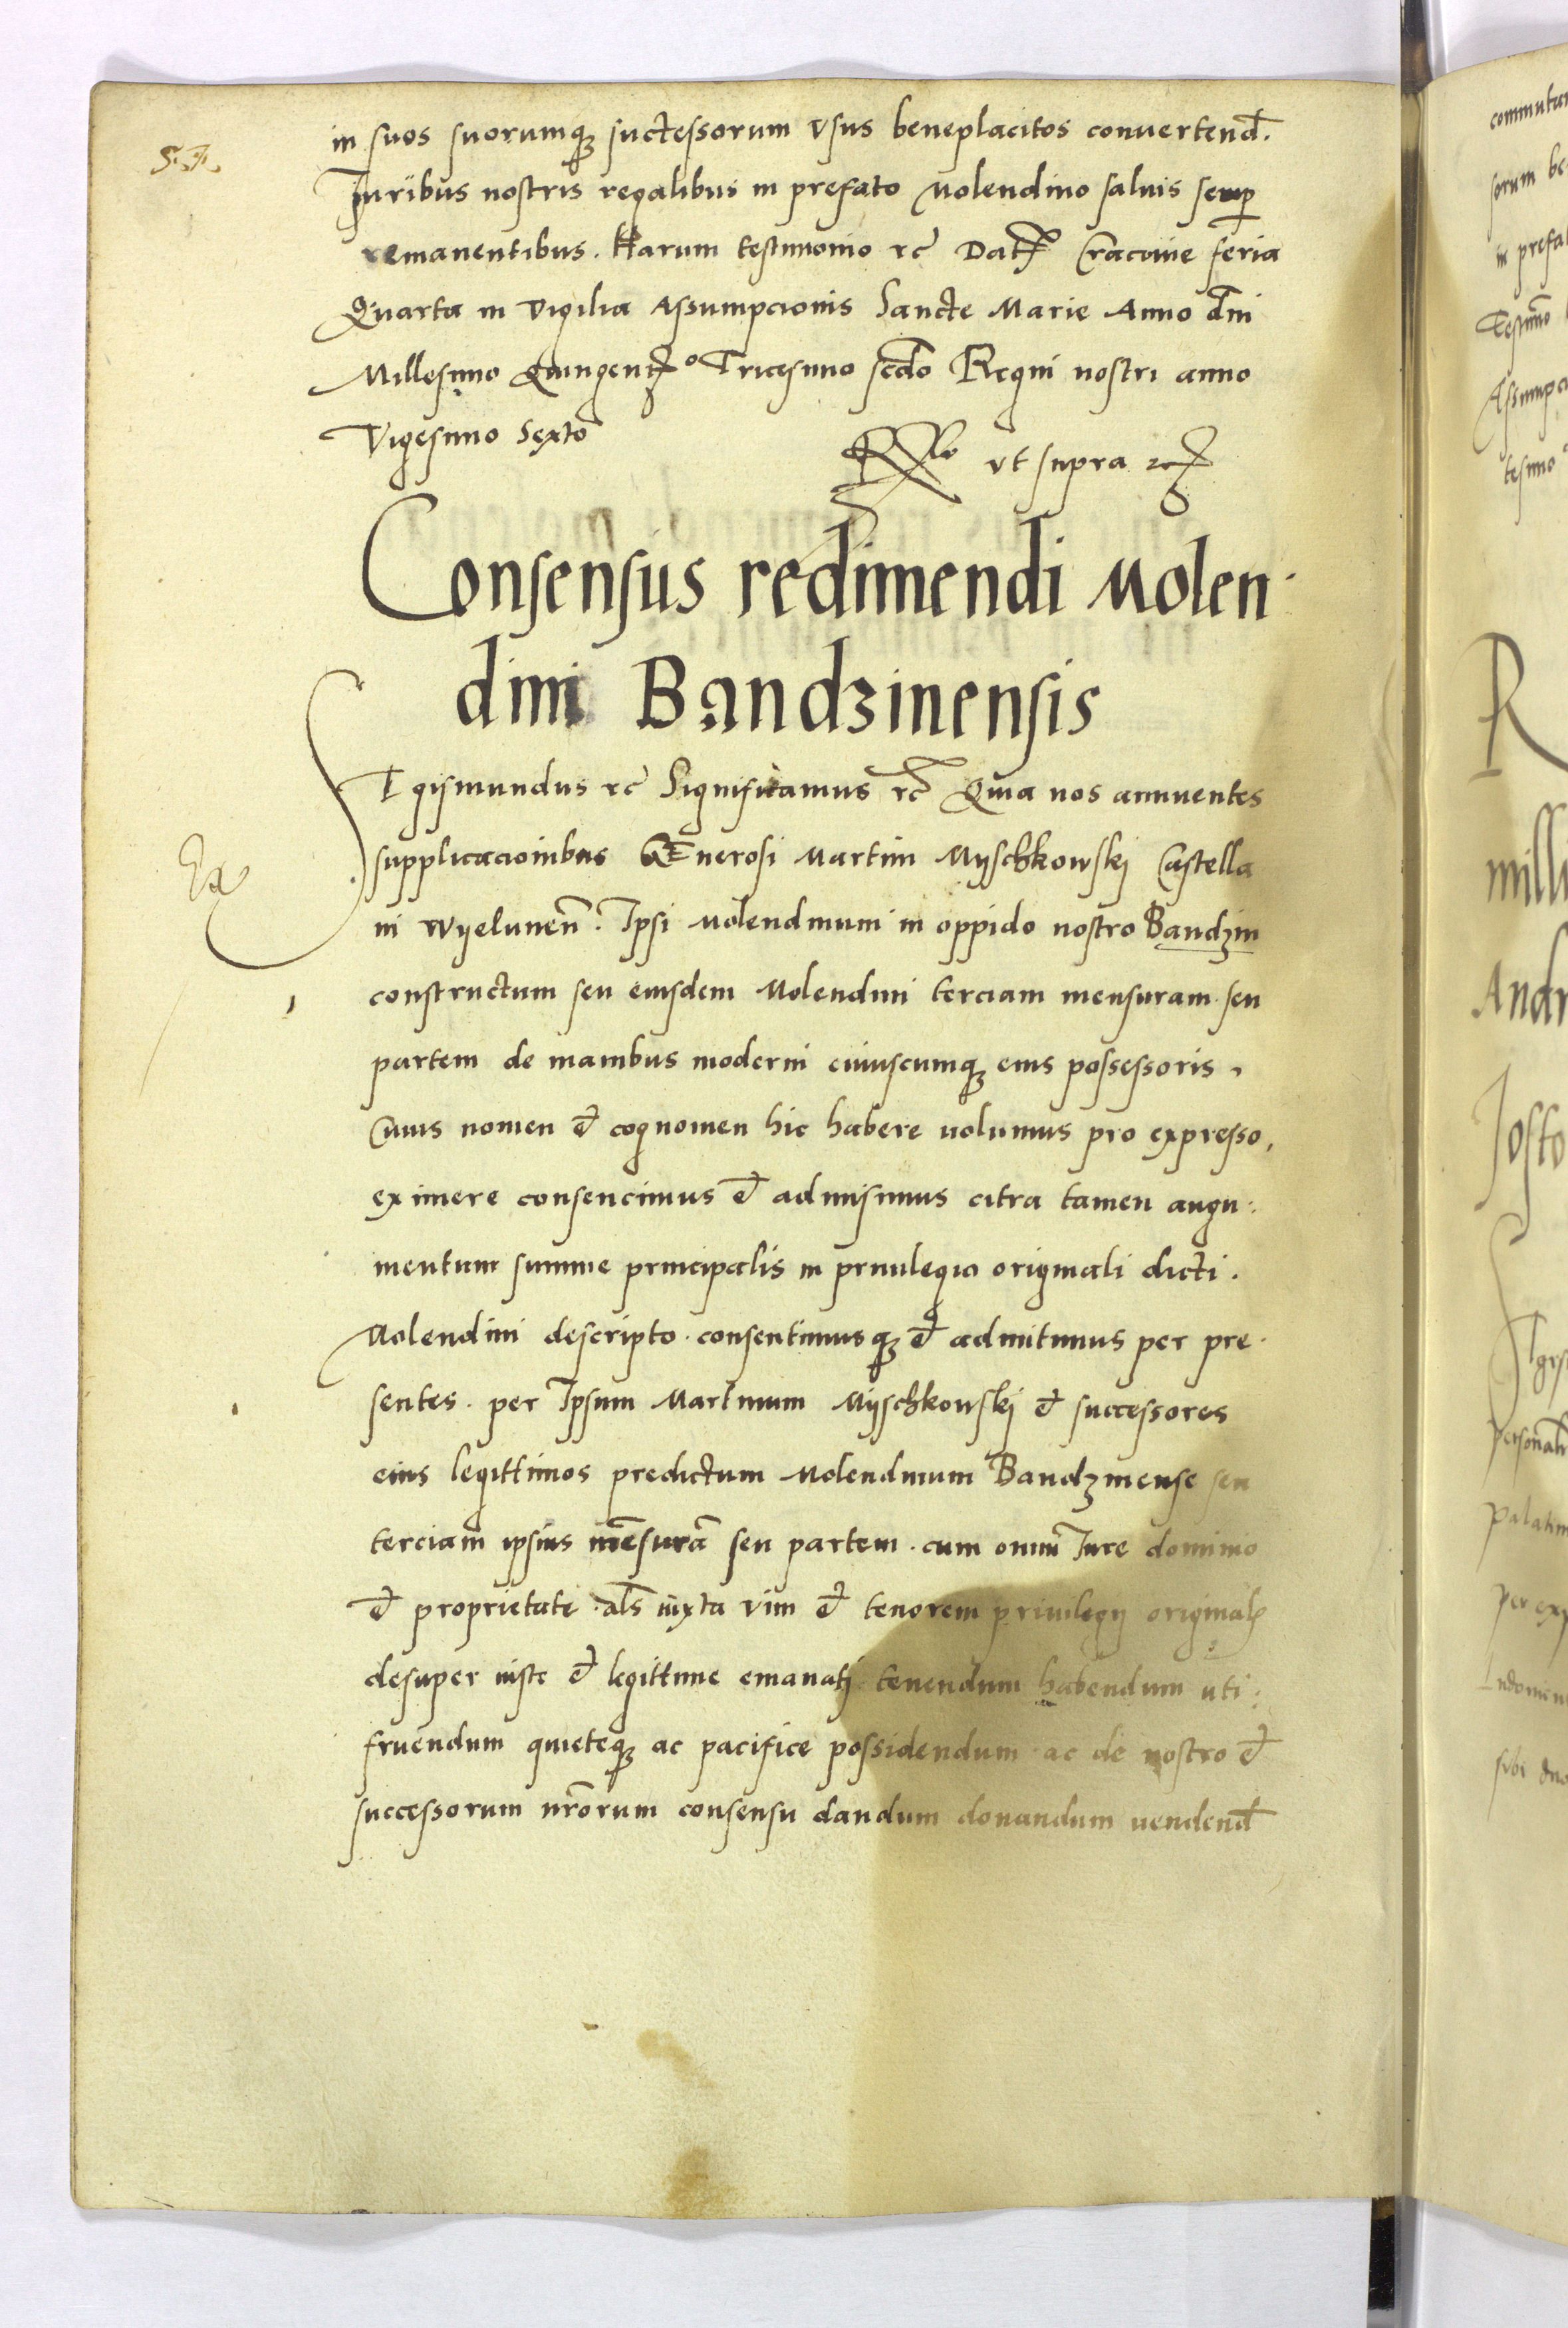 in suos suorumqȝ suctessorum vsus beneplacitos conuertend̄.
Iuribus nostris regalibus in prefato Molendino saluis semꝑ
remanentibus. Harum testimonio rc̄ Datꝭ Cracouie feria
Quarta in Vigilia Assumpcionis Sancte Marie Anno dn̄i
Millesimo Quingentꝭo Tricesimo scd̄o Regni nostri anno
Vigesimo Sexto
Rͤlo vt supra rcꝭ
Consensus redimendi Molen
dini Bandzinensis
SIgismundus rc̄ Significamus rc̄ Quia nos annuentes
supplicacionibus GEnerosi Martini Myschkowskij Castella
ni Wyelunen̄. Ipsi Molendinum in oppido nostro Bandzin
constructum seu eiusdem Molendini terciam mensuram seu
partem de manibus moderni cuiuscumqȝ eius possessoris.
Cuius nomen et cognomen hic habere uolumus pro expresso,
eximere consencimus et admisimus citra tamen augu
mentum summe principalis in priuilegio originali dicti.
Molendini descripto. consentimusqȝ et admitimus per pre
sentes. per Ipsum Martinum Myschkowskij et successores
eius legittimos predictum Molendinum Bandzinense seu
terciam ipsius mēsurā seu partem. cum omni Iure dominio
et proprietate. als̄ iuxta vim et tenorem priuilegij originalꝭ
desuper iuste et legittime emanatj tenendum habendum uti
fruendum quieteqȝ ac pacifice possidendum ac de nostro et
successorum nr̄orum consensu dandum donandum uendend̄